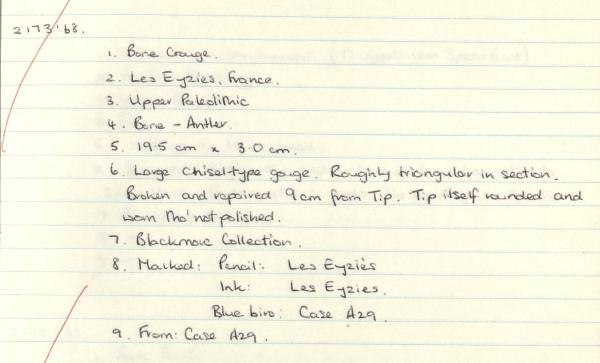 2173'68.
1. Bone Gouge.
2. Les Eyzies, France.
3. Upper Paleolithic
4. Bone - Antler.
5. 19.5 cm x 3.0 cm.
6. Large chisel-type gouge. Roughly triangular in section.
Broken and repaired 9cm from Tip. Tip itself rounded and
worn tho' not polished.
7. Blackmore Collection.
8. Marked: Pencil: Les Eyziès
Ink: Les Eyzies.
Blue biro: Case A29.
9. From: Case A29.